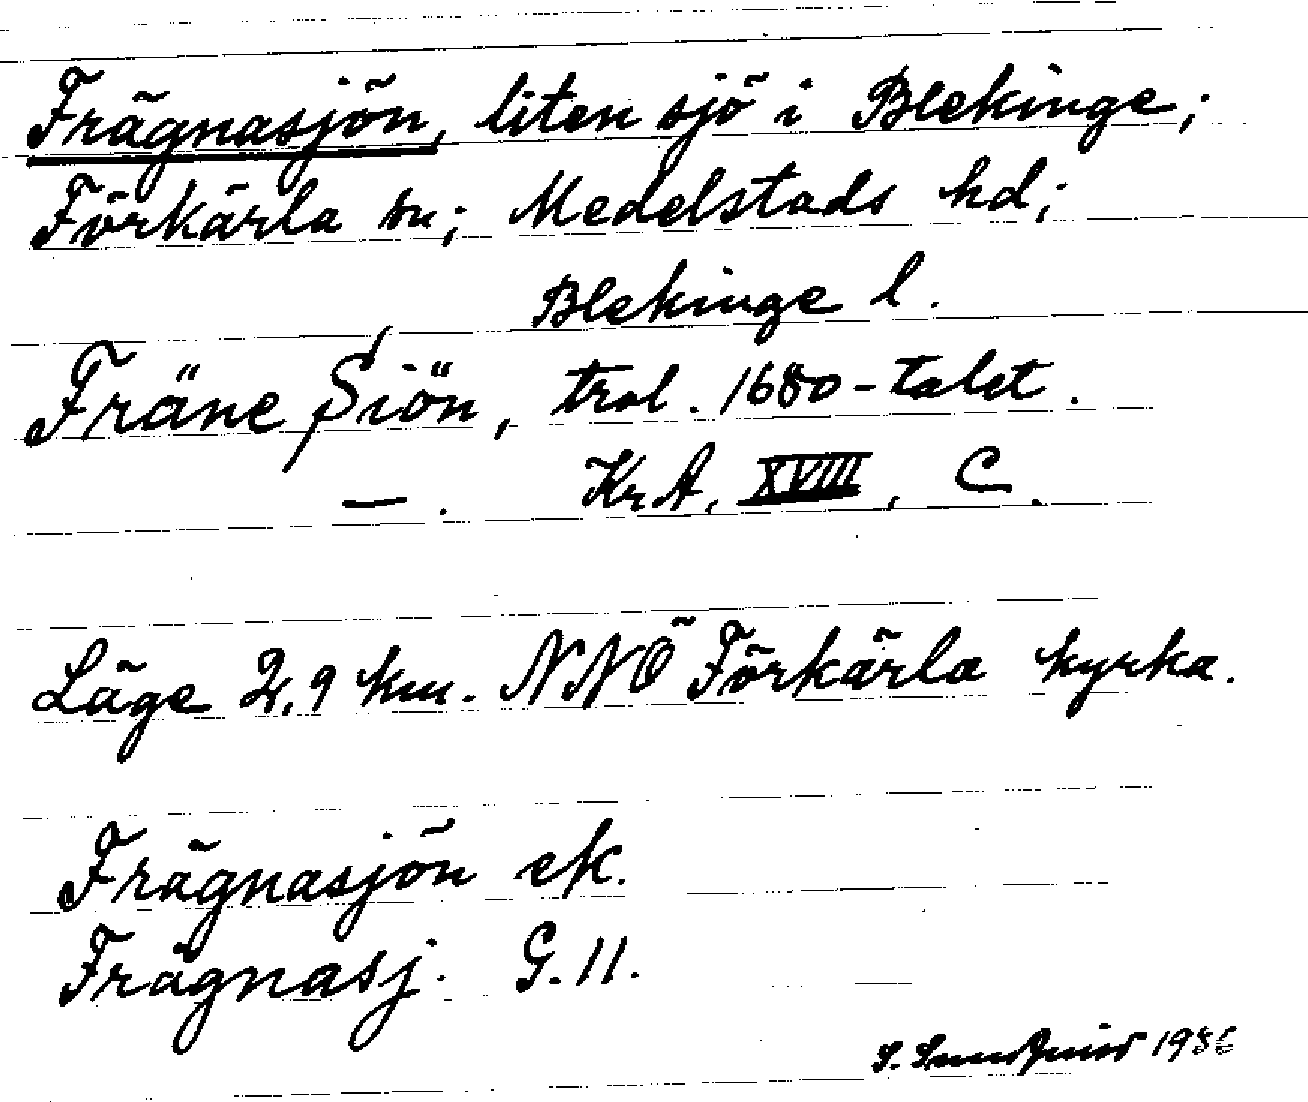 Frägnasjön, liten sjö i Blekinge;
Förkärla sn; Medelstads hd;
Blekinge l.
Fräne Siön, trol. 1680-talet.
—. KrA, XVIII, C.
Läge 2,9 km. NNÖ Förkärla kyrka.
Frägnasjön ek.
Frägnasj. G. 11.
S. 1936